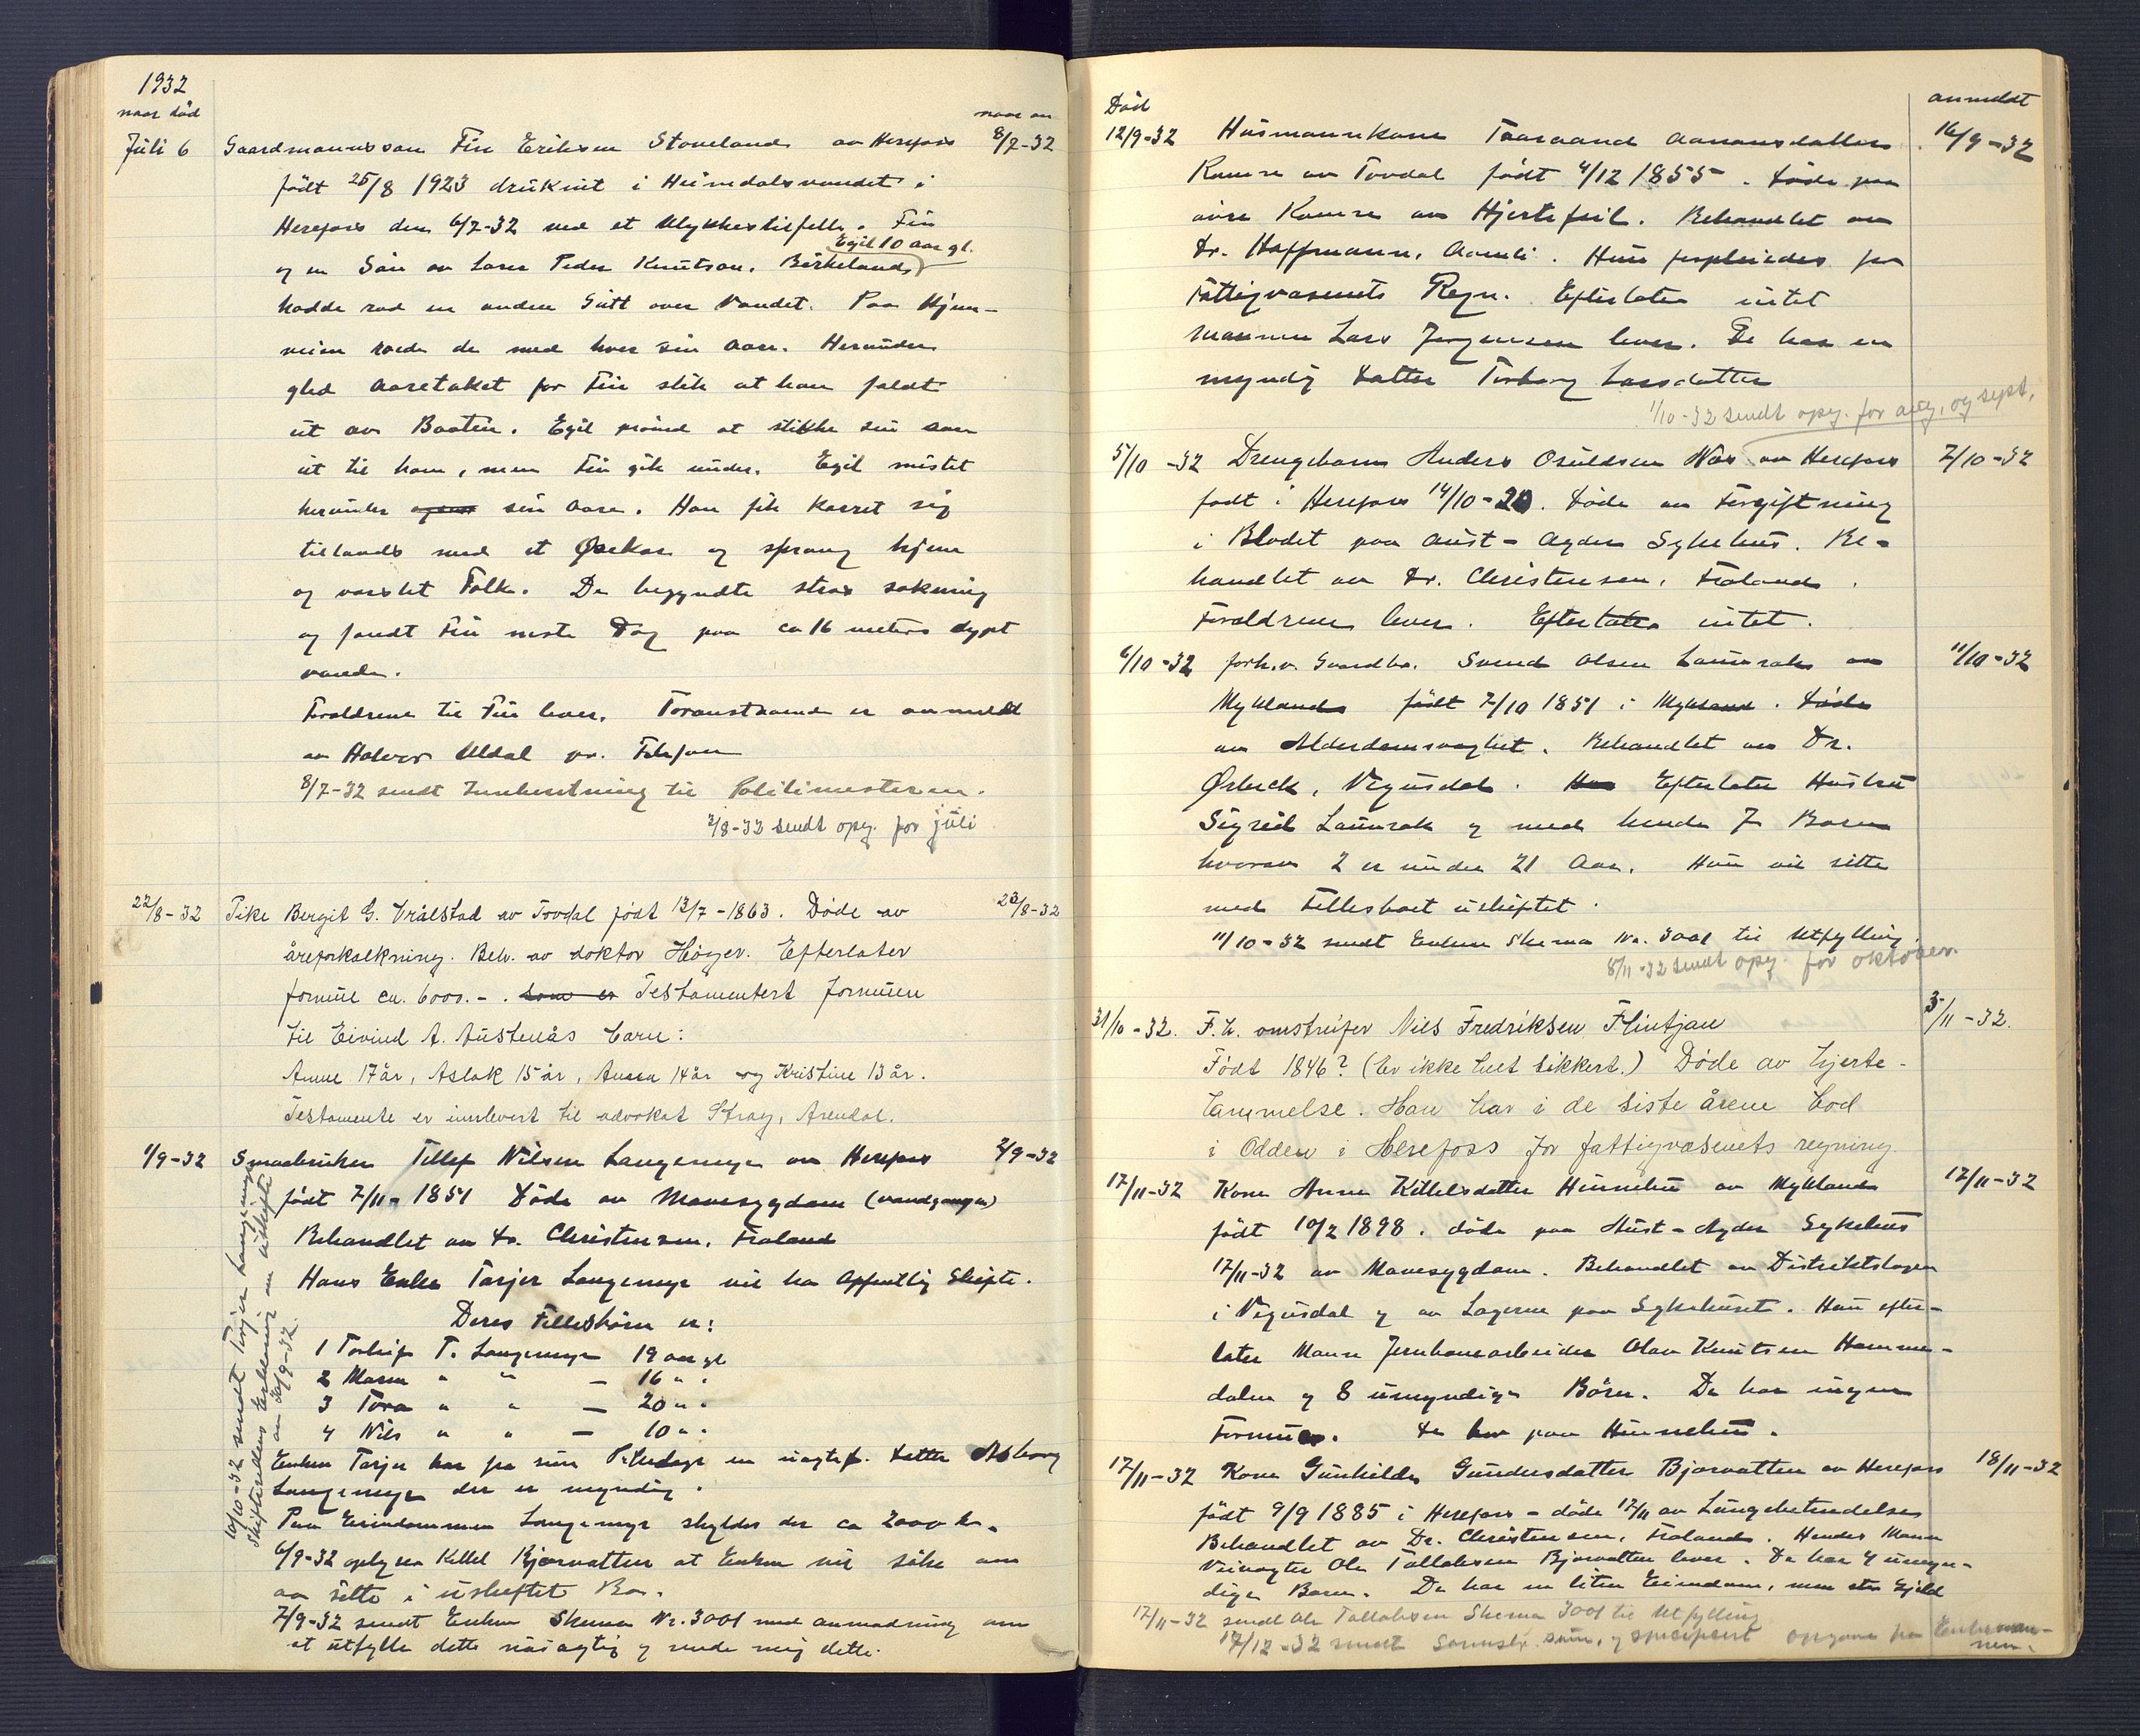 1932
naar död
naar an
Juli 6 Gaardmannssøn Fin Eriksen Stoveland av Herefoss 8/7-32
födt 25/8 1923 druknet i Heimdalsvandet i
Herefoss den 6/7-32 ved et Ulykkestilfelle. Fin
Egil 10 aar gl.
og en Søn av Lars Peder Knutson, Birkeland,
hadde rod en anden Gutt over Vandet. Paa Hjem-
veien roede de med hver sin Aare. Herunder
gled Aaretaket for Fin slik at han faldt
ut av Baaten. Egil prøved at stikke sin aare
ut til ham, men Fin gik under. Egil mistet
herunder ogsaa sin Aare. Han fik karret sig
tillands med et Øsekar og sprang hjem
og varslet Folk. De begyndte strax søkning
og fandt Fin neste Dag paa ca 16 meters dypt
vande.
Foreldrene til Fin lever. Foranstaaende er anmeldt
av Halvor Uldal pr. Telefon
8/7-32 sendt Innberetning til Politimesteren.
2/8-32 sendt opg. for juli
22/8-32 Pike Bergit G. Vrålstad av Tovdal født 13/7-1863. Døde av 23/8-32
åreforkalkning. Beh. av doktor Høyer. Efterlater
formue ca. 6000.-. som er Testamentert formuen
til Eivind A. Austenås barn:
Anne 17 år, Aslak 15 år, Anna 14 år og Kristine 13 år.
Testamente er innlevert til advokat Stray, Arendal.
1/9-32 Smaabruker Tellef Nilsen Langemyr av Herefoss 2/9-32
født 7/11-1851 Döde av Mavesygdom (vandganger)
Behandlet av Dr. Christensen, Froland
Hans Enke Tarjer Langemyr vil ha Offentlig Skifte.
Deres Fellesbörn er:
1 Torleif T. Langemyr 19 aar gl
2 Maren " " — 16 " "
3 Tora " " — 20 " "
4 Nils " " — 10 " "
Enken Tarjer har fra sine Pikedage en uagtef. Datter Asborg
Langemyr der er myndig.
Paa Eiendommen Langemyr skyldes der ca 2000 kr.
6/9-32 oplyser Kittel Bjorvatten at Enken vil söke om
aa sitte i uskiftet Bo.
7/9-32 sendt Enken Skema Nr. 3001 med anmodning om
at utfylle dette nöiagtig og sende mig dette.
10/10-32 sendt Tarjer Langemyr
Skifterettens Erklæring om uskifte
av 30/9-32.
Död
anmeldt
12/9-32 Husmannskone Taaraand Aanonsdatter 16/9-32
Ramse av Tovdal födt 4/12 1855. Döde paa
övre Ramse av Hjertefeil. Behandlet av
Dr. Hoffmann, Aamli. Hun forpleiedes for
Fattigvæsenets Regn. Efterlater intet
mannen Lars Jørgensen lever. De har en
myndig Datter Torborg Larsdatter
1/10-32 sendt opg. for aug. og sept.
5/10-32 Drengebarn Anders Osuldsen Næs av Herefoss 7/10-32
født i Herefoss 14/10-20. Döde av Forgiftning
i Blodet paa Aust-Agder Sykehus. Be-
handlet av Dr. Christensen, Froland.
Foreldrene lever. Efterlater intet.
6/10-32 forh.v. Gaardbr. Svend Olsen Lauvrak av 11/10-32
Mykland födt 7/10 1851 i Mykland. Döde
av Alderdomsvaghet. Behandlet av Dr.
Ørbeck, Vegusdal. Han Efterlater Hustru
Sigrid Lauvrak og med hende 7 Barn
hvorav 2 er under 21 Aar. Hun vil sitte
med Fellesboet uskiftet.
11/10-32 sendt Enken Skema Nr. 3001 til Utfylling
8/11-32 sendt opg. for oktober.
31/10-32. F.h. omstreifer Nils Fredriksen Flintjan 3/11-32.
Født 1846? (Er ikke helt sikkert.) Døde av hjerte-
lammelse. Han har i de siste årene bod
i Odden i Herefoss for fattigvæsenets regning.
17/11-32 Kone Anne Kittelsdatter Hunnehei av Mykland 17/11-32
födt 10/2 1898. döde paa Aust-Agder Sykehus
17/11-32 av Mavesygdom. Behandlet av Distriktslægen
i Vegusdal og av Lægerne paa Sykehuset. Hun efter-
later Mann Jernbanearbeider Olav Knutsen Hamme-
dalen og 8 umyndige Börn. De har ingen
Formue. De bor paa Hunnehei.
17/11-32 Kone Gunhilde Gundersdatter Bjorvatten av Herefoss 18/11-32
født 9/9 1885 i Herefoss - döde 17/11 av Lungebetendelse
Behandlet av Dr. Christensen, Froland. Hendes Mann
Veivogter Ole Tallaksen Bjorvatten lever. De har 4 umyn-
dige Barn. De har en liten Eiendom, men stor Gjeld
17/11-32 sendt Ole Tallaksen Skema 3001 til Utfylling
17/12-32 sendt og spesifisert opgave fra Enkeman-
nen.